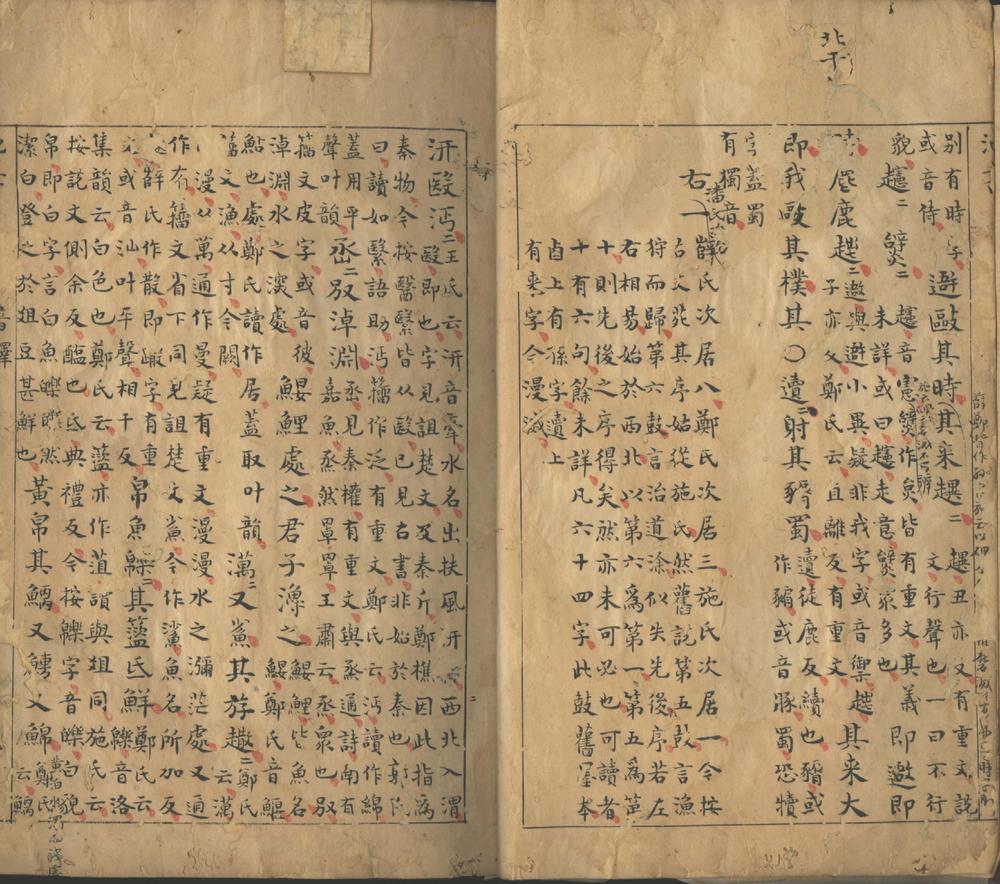 別有時
或音侍
避敺其時其来趩二
趩丑亦又有重文説
文行聲也一曰不行
貌
趫音憲 作炱皆有重文其義即遬即
未詳或曰趫走意 衆多也
麀鹿趚二
遬與遊小異疑非我字或音禦
子亦欠鄭氏云且離反有重文
趚其来大
即我敺其樸其○瀆二射其豜蜀
瀆徒鹿反續也豜或
作豵或音豚蜀恐犢
字蓋蜀
有獨音
右一
薛氏次居八鄭氏次居三施氏次居一今按
古文苑其序姑從施氏然舊説第五鼓言漁
狩而歸第六鼓言治道涂似失先後序若左
右相易始於西北以第六爲第一第五爲第
十則先後之序得矣然亦未可必也可讀者
十有六句餘未詳凡六十四字此鼓舊墨本
卣上有孫字瀆上
有来字今漫滅
汧殹沔二
王氏云汧音牽水名出扶風汧 西北入渭
殹即也字見詛楚文及秦斤鄭樵因此指爲
秦物今按醫繄皆从殹已見古書非始於秦也鄭氏
曰讀如繄語助沔籀作泛有重文鄭氏云沔讀作綿
蓋用平
聲叶韻
丞二䝘淖淵
丞見秦權有重文與烝通詩南有
嘉魚烝然罩罩王肅云烝衆也䝘
籀文皮字或音彼
淖淵水之深處
鰋鯉處之君子漁之
鰋鯉皆魚名
鰋鄭氏音鰸
鮎也處鄭氏讀作居蓋取叶韻
籀文漁从寸今闕
澫二又鯊其游趣二
鄭氏
云澫
漫从萬通作曼疑有重文漫漫水之瀰茫處又通
作有籀文省下同見詛楚文鯊今作鯊魚名所加反
薛氏作散即 字有重
文或音汕叶平聲相干反
帛魚皪二其籃氐鮮
鄭氏云
皪音洛
集韻云白色也鄭氏云籃亦作菹讀與俎同施氏云
按説文側余反醢也氐典禮反今按皪字音皪白貌
帛即白字言白魚皪皪然
潔白登之於俎豆甚鮮也
黃帛其鯿又鱄又鯿
鄭氏
云鯿